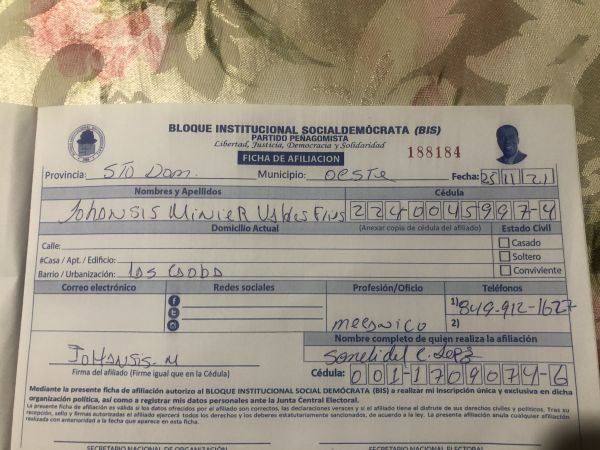 BLOQUE INSTITUCIONAL SOCIALDEMÓCRATA (BIS)
PARTIDO PEÑAGOMISTA
Libertad, Justicia, Democracia y Solidaridad
FICHA DE AFILIACION
188184
Provincia: STO Dom. Municipio: oeste Fecha: 25 11 21
Nombres y Apellidos Cédula
Johansis Minier 224-0045997-4
Domicilio Actual (Anexar copia de cédula del afiliado) Estado Civil
Calle: Casado
#Casa / Apt. / Edificio: Soltero
Barrio / Urbanización: Los Conviviente
Correo electrónico Redes sociales Profesión/Oficio Teléfonos
1) 849-912-1627
mecanico 2)
Nombre completo de quien realiza la afiliación
Johansis. M
Firma del afiliado (Firme igual que en la Cédula) Cédula: 001-1709074-6
Mediante la presente ficha de afiliación autorizo al BLOQUE INSTITUCIONAL SOCIAL DEMÓCRATA (BIS) a realizar mi inscripción única y exclusiva en dicha
organización política, así como a registrar mis datos personales ante la Junta Central Electoral.
La presente ficha de afiliación es válida si los datos ofrecidos por el afiliado son correctos, las declaraciones veraces y si el afiliado tiene el disfrute de sus derechos civiles y políticos. Tras su
recepción, sello y firmas autorizadas el afiliado ejercerá todos los derechos y los deberes estatutariamente sancionados, de acuerdo a la ley. La presente afiliación anula cualquier afiliación
realizada con anterioridad a la fecha que aparece en esta ficha.
SECRETARIO NACIONAL DE ORGANIZACIÓN SECRETARIO NACIONAL ELECTORAL